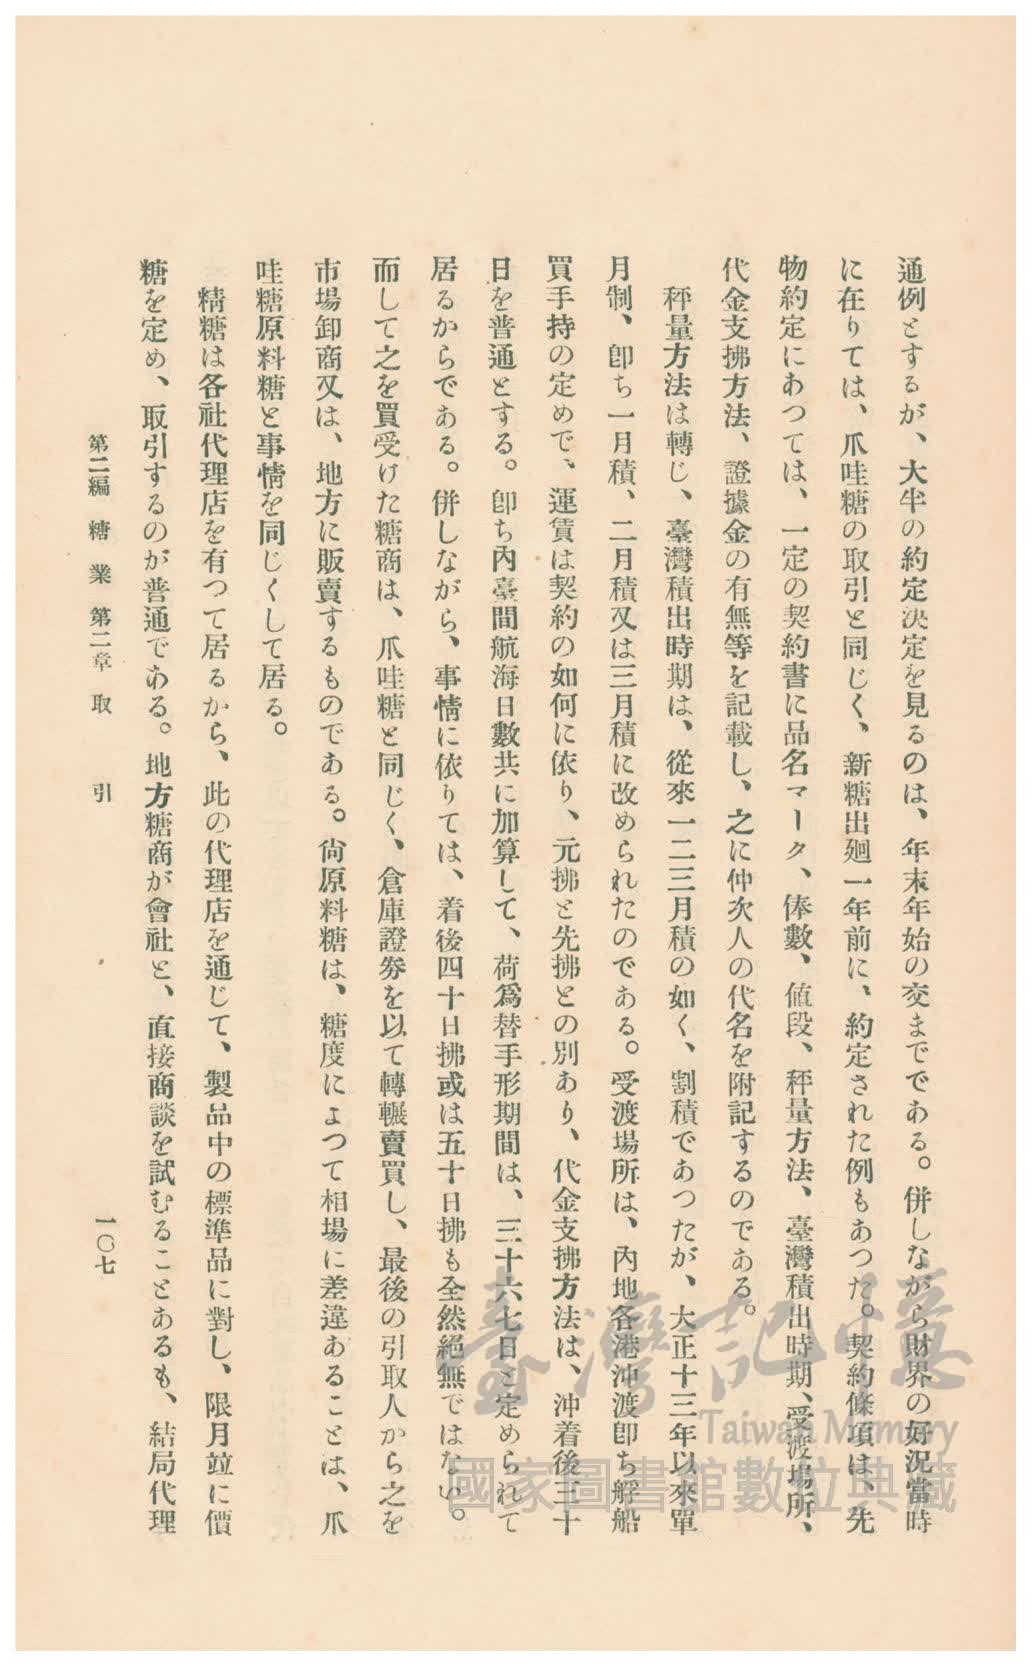 通例とするが、大半の約定決定を見るのは、年末年始の交までである。併しながら財界の好況當時
に在りては、爪哇糖の取引と同じく、新糖出廻一年前に、約定された例もあつた。契約條項は、先
物約定にあつては、一定の契約書に品名マーク、俸數、値段、秤量方法、臺灣積出時期、受渡場所、
代金支拂方法、證據金の有無等を記載し、之に仲次人の代名を附記するのである。
秤量方法は轉じ、臺灣積出時期は、從來一二三月積の如く、割積であつたが、大正十三年以來單
月制、卽ち一月積、二月積又は三月積に改められたのである。受渡場所は、內地各港沖渡卽ち艀船
買手持の定めで、運賃は契約の如何に依り、元拂と先拂との別あり、代金支拂方法は、沖着後三十
日を普通とする。卽ち內臺間航海日數共に加算して、荷爲替手形期間は、三十六七日と定められて
居るからである。併しながら、事情に依りては、着後四十日拂或は五十日拂も全然絕無ではない。
而して之を買受けた糖商は、爪哇糖と同じく、倉庫證劵を以て轉輾賣買し、最後の引取人から之を
市場卸商又は、地方に販賣するものである。尙原料糖は、糖度によつて相場に差違あることは、爪
哇糖原料糖と事情を同じくして居る。
精糖は各社代理店を有つて居るから、此の代理店を通じて、製品中の標準品に對し、限月竝に價
糖を定め、取引するのが普通である。地方糖商が會社と、直接商談を試むることあるも、結局代理
第二編 糖業 第二章 取引
一〇七
臺灣記憶
Taiwan Memory
國家圖書館數位典藏